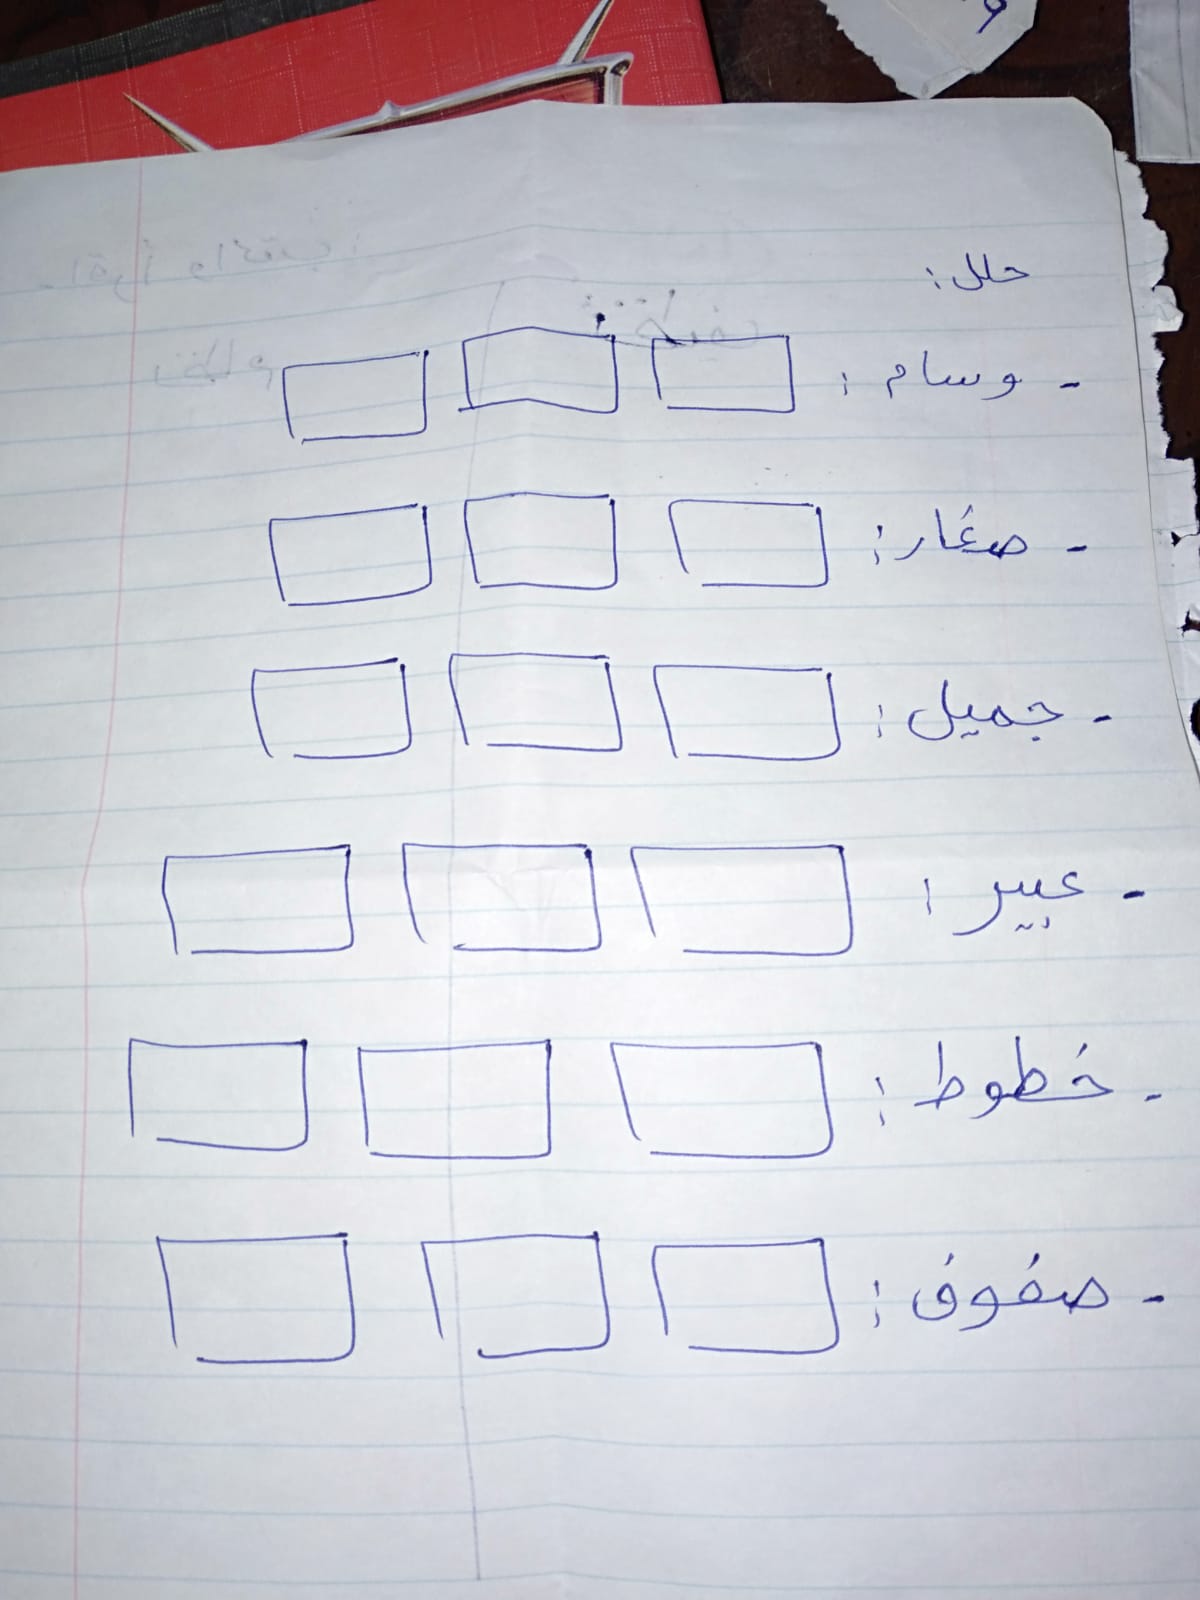 حلل:
- وسام:
- صغار:
- جميل:
- عبير:
- خطوط:
- صفوف: